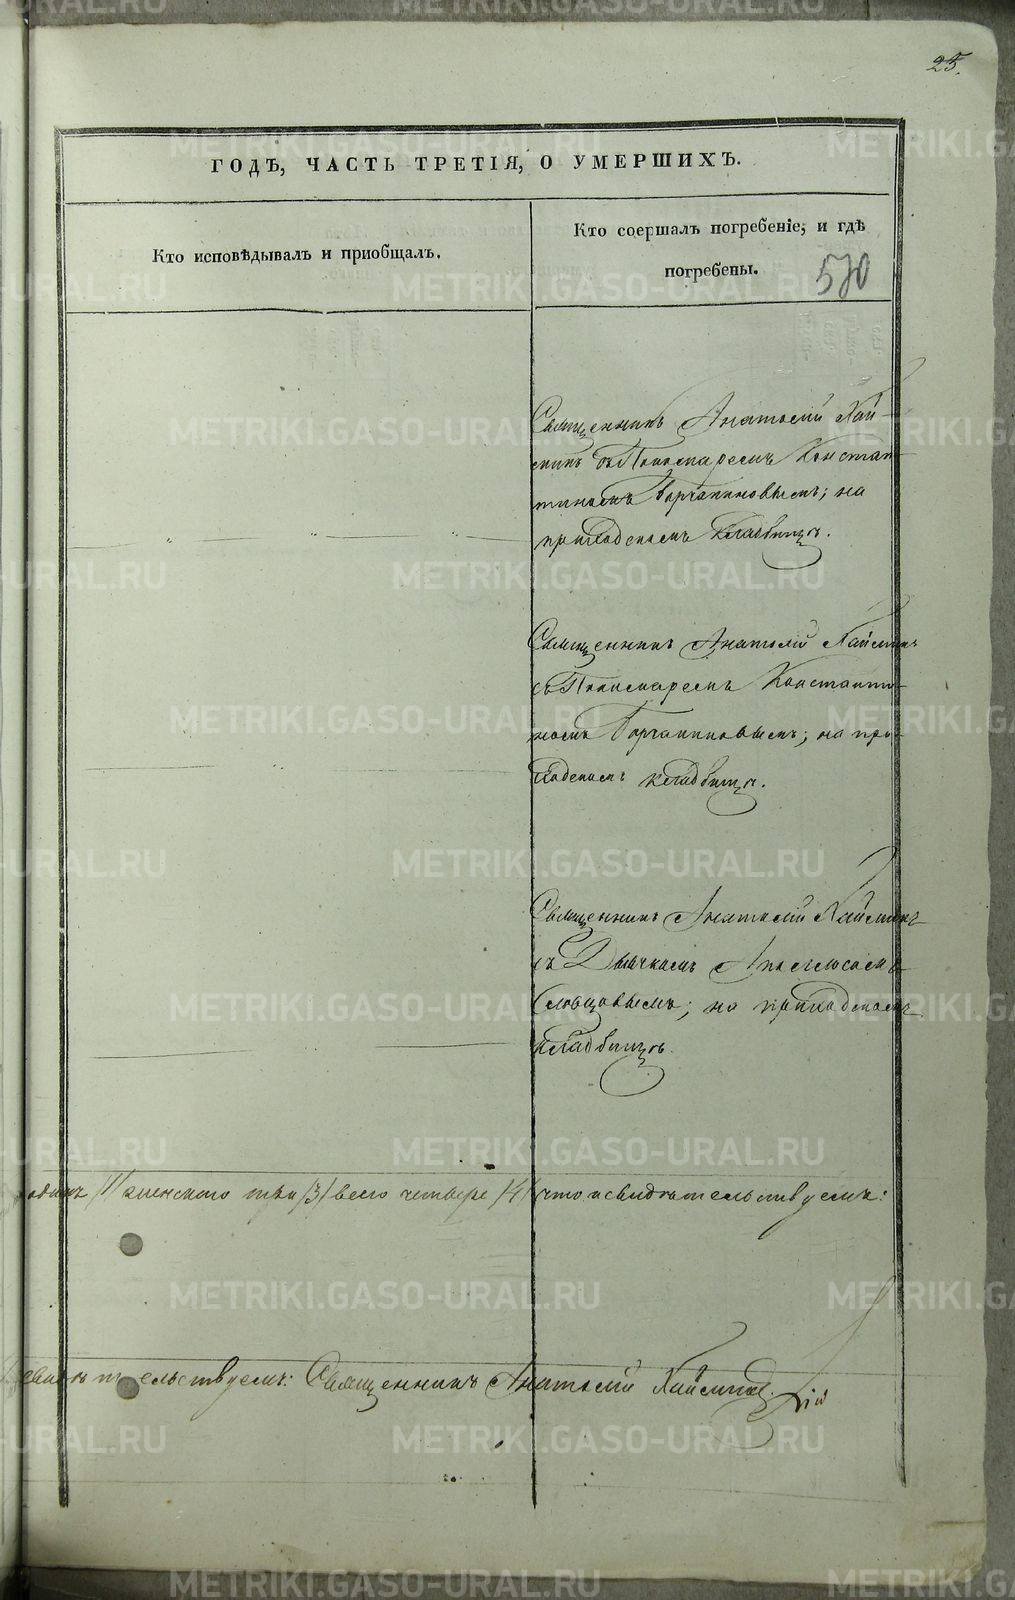 25.
ГОДЪ, ЧАСТЬ ТРЕТІЯ, О УМЕРШИХЪ.
Кто исповѣдывалъ и приобщалъ.
Кто соершалъ погребеніе, и гдѣ
погребены.
570
Священникъ Анатолій
съ Пономаремъ Констан-
тиномъ на
приходскомъ кладбищѣ.
Священникъ Анатолій
съ Пономаремъ Константи-
номъ на при-
ходскомъ кладбищѣ.
Священникъ Анатолій
съ Дьячкомъ Аполлосомъ
Словцовымъ; на приходскомъ
кладбищѣ.
Женского три /3/ всего четыре /4/ что и свидѣтельствуемъ:
свидѣтельствуемъ: Священникъ Анатолій
METRIKI.GASO-URAL.RU